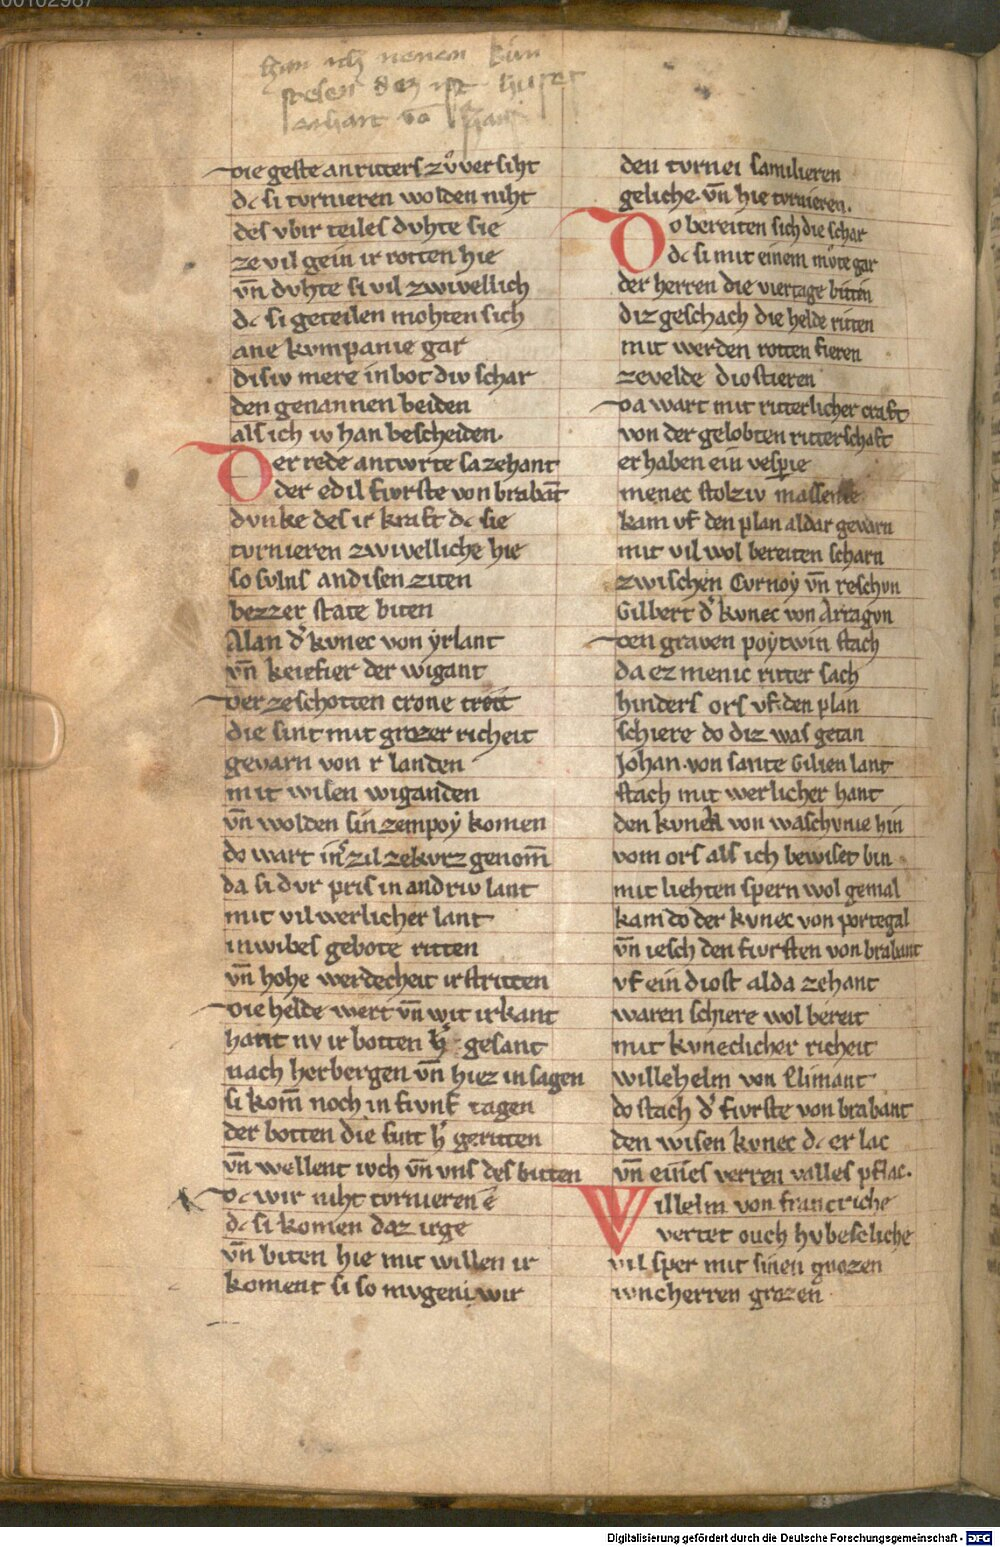 00102987
ich nenen kün
der ist
von
die geste an ritters zů versiht
dc si tvrnieren wolden niht
des vbir teiles dvhte sie
ze vil gein ir rotten hie
vn̄ dvhte si vil zwivellich
dc si geteilen mohten sich
ane kvmpanie gar
disiv mere in bot div schar
den genannen beiden
als ich iv han bescheiden.
Der rede antwrte sa zehant
der edil fivrste von brabāt
dvnke des ir kraft dc sie
tvrnieren zwivelliche hie
so svlns an disen ziten
bezzer state biten
Alan d' kvnec von ẏrlant
vn̄ keiefier der wigant
der ze schotten crone treit
die sint mit grozer richeit
gevarn von r landen
mit wisen wiganden
vn̄ wolden sin zempoẏ komen
do wart in' zil ze kvrz genom̄
da si dvr pris in andriv lant
mit vil werlicher hant
in wibes gebote ritten
vn̄ hohe werdecheit irstritten
die helde wert vn̄ wit irkant
hant nv ir botten h' gesant
nach herbergen vn̄ hiez in sagen
si kom̄ noch in fivnf tagen
der botten die sint h' geritten
vn̄ wellent ivch vn̄ vns des bitten
dc wir niht tvrnieren e
dc si komen daz irge
vn̄ biten hie mit willen ir
koment si so mvgen wir
den tvrnei samilieren
geliche vn̄ hie tvrnieren.
Do bereiten sich die schar
dc si mit einem mv̊te gar
der herren die viertage bitten
diz geschach die helde ritten
mit werden rotten fieren
ze velde diostieren
da wart mit ritterlicher craft
von der gelobten ritterschaft
er haben ein vesperie
menec stolziv massenie
kam vf den plan aldar gevarn
mit vil wol bereiten scharn
zwischen Cvrnoẏ vn̄ reschvn
Gilbert d' kvnec von Arragvn
den graven poẏtwin stach
da ez menic ritter sach
hinders ors vf den plan
schiere do diz was getan
Johan von sante Gilien lant
stach mit werlicher hant
den kvnek von waschvnie hin
vom ors als ich bewiset bin
mit liehten spern wol gemal
kam do der kvnec von portegal
vn̄ iesch den fivrsten von brabant
vf ein diost alda zehant
waren schiere wol bereit
mit kvneclicher richeit
willehelm von Climant
do stach d' fivrste von brabant
den wisen kvnec dc er lac
vn̄ eines verren valles pflac.
Willelm von francriche
vertet ouch hvbescliche
vil sper mit sinen gnozen
ivncherren grozen
Digitalisierung gefördert durch die Deutsche Forschungsgemeinschaft - DFG